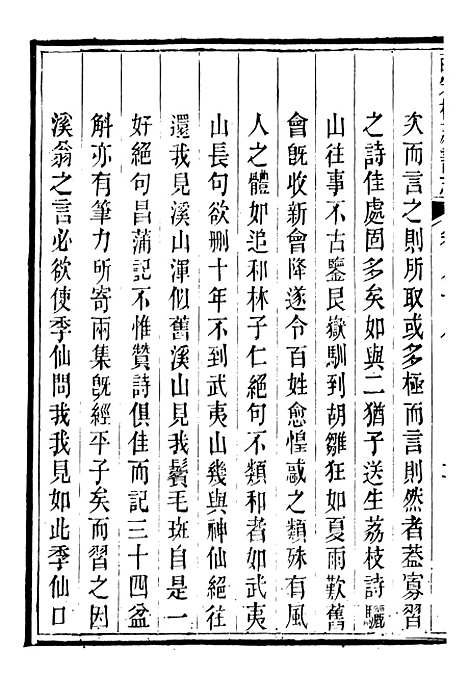 次而言之則所取或多極而言則然者葢寡習
之詩佳處固多矣如與二猶子送生荔枝詩驪
山往事不古鑒艮嶽馴到胡雛狂如夏雨歎舊
會旣收新會降遂令百姓愈惶惑之類殊有風
人之體如追和林子仁絕句不類和者如武夷
山長句欲刪十年不到武夷山幾與神仙絕往
還我見溪山渾似舊溪山見我鬢毛斑自是一
好絕句昌蒲記不惟贊詩俱佳而記三十四盆
斛亦有筆力所寄兩集旣經平子矣而習之因
溪翁之言必欲使季仙問我我見如此季仙口